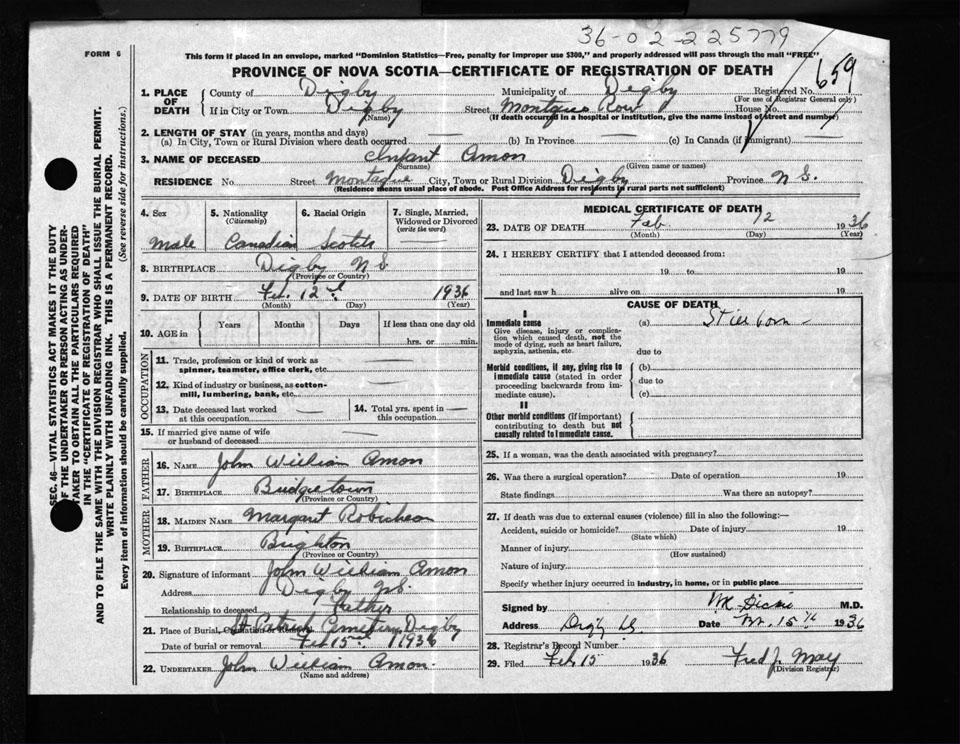 36-02-225779
FORM 6
This form if placed in an envelope, marked "Dominion Statistics—Free, penalty for improper use $300," and properly addressed will pass through the mail "FREE"
PROVINCE OF NOVA SCOTIA—CERTIFICATE OF REGISTRATION OF DEATH
659
1. PLACE OF DEATH
County of Digby Municipality of Digby Registered No.
(For use of Registrar General only)
If in City or Town Digby Street Montague Row House No.
(Name) (If death occurred in a hospital or institution, give the name instead of street and number)
2. LENGTH OF STAY (in years, months and days)
(a) In City, Town or Rural Division where death occurred — (b) In Province — (c) In Canada (if immigrant) —
3. NAME OF DECEASED Infant Amon
(Surname) (Given name or names)
RESIDENCE No. Street Montague City, Town or Rural Division Digby Province N S.
(Residence means usual place of abode. Post Office Address for residents in rural parts not sufficient)
4. Sex 5. Nationality (Citizenship) 6. Racial Origin 7. Single, Married, Widowed or Divorced (write the word)
Male Canadian Scotch —
8. BIRTHPLACE Digby N S
(Province or Country)
9. DATE OF BIRTH Feb. 12 1936
(Month) (Day) (Year)
10. AGE in Years Months Days If less than one day old
hrs. or min.
OCCUPATION
11. Trade, profession or kind of work as spinner, teamster, office clerk, etc. —
12. Kind of industry or business, as cotton-mill, lumbering, bank, etc. —
13. Date deceased last worked at this occupation —
14. Total yrs. spent in this occupation —
15. If married give name of wife or husband of deceased —
FATHER
16. NAME John William Amon
17. BIRTHPLACE Bridgetown
(Province or Country)
MOTHER
18. MAIDEN NAME Margaret Robicheau
19. BIRTHPLACE Brighton
(Province or Country)
20. Signature of informant John William Amon
Address Digby N.S.
Relationship to deceased Father
21. Place of Burial, Cremation or Removal St Patrick Cemetery Digby
Date of burial or removal Feb 15 1936
22. UNDERTAKER John William Amon.
(Name and address)
MEDICAL CERTIFICATE OF DEATH
23. DATE OF DEATH Feb 12 1936
(Month) (Day) (Year)
24. I HEREBY CERTIFY that I attended deceased from:
19 to 19
and last saw h alive on 19
CAUSE OF DEATH
I
Immediate cause (a) Still born
Give disease, injury or complication which caused death, not the mode of dying, such as heart failure, asphyxia, asthenia, etc.
due to
Morbid conditions, if any, giving rise to immediate cause (stated in order proceeding backwards from immediate cause).
(b)
due to
(c)
II
Other morbid conditions (if important) contributing to death but not causally related to immediate cause.
25. If a woman, was the death associated with pregnancy?
26. Was there a surgical operation? Date of operation 19
State findings Was there an autopsy?
27. If death was due to external causes (violence) fill in also the following:—
Accident, suicide or homicide? Date of injury 19
(State which)
Manner of injury
(How sustained)
Nature of injury
Specify whether injury occurred in industry, in home, or in public place
Signed by M.D.
Address Digby Date 15 1936
28. Registrar's Record Number
29. Filed Feb 15 1936 Fred J. May
(Division Registrar)
SEC. 46—VITAL STATISTICS ACT MAKES IT THE DUTY
OF THE UNDERTAKER OR PERSON ACTING AS UNDER-
TAKER TO OBTAIN ALL THE PARTICULARS REQUIRED
IN THE "CERTIFICATE OF REGISTRATION OF DEATH"
AND TO FILE THE SAME WITH THE DIVISION REGISTRAR WHO SHALL ISSUE THE BURIAL PERMIT.
WRITE PLAINLY WITH UNFADING INK. THIS IS A PERMANENT RECORD.
Every item of information should be carefully supplied. (See reverse side for instructions.)